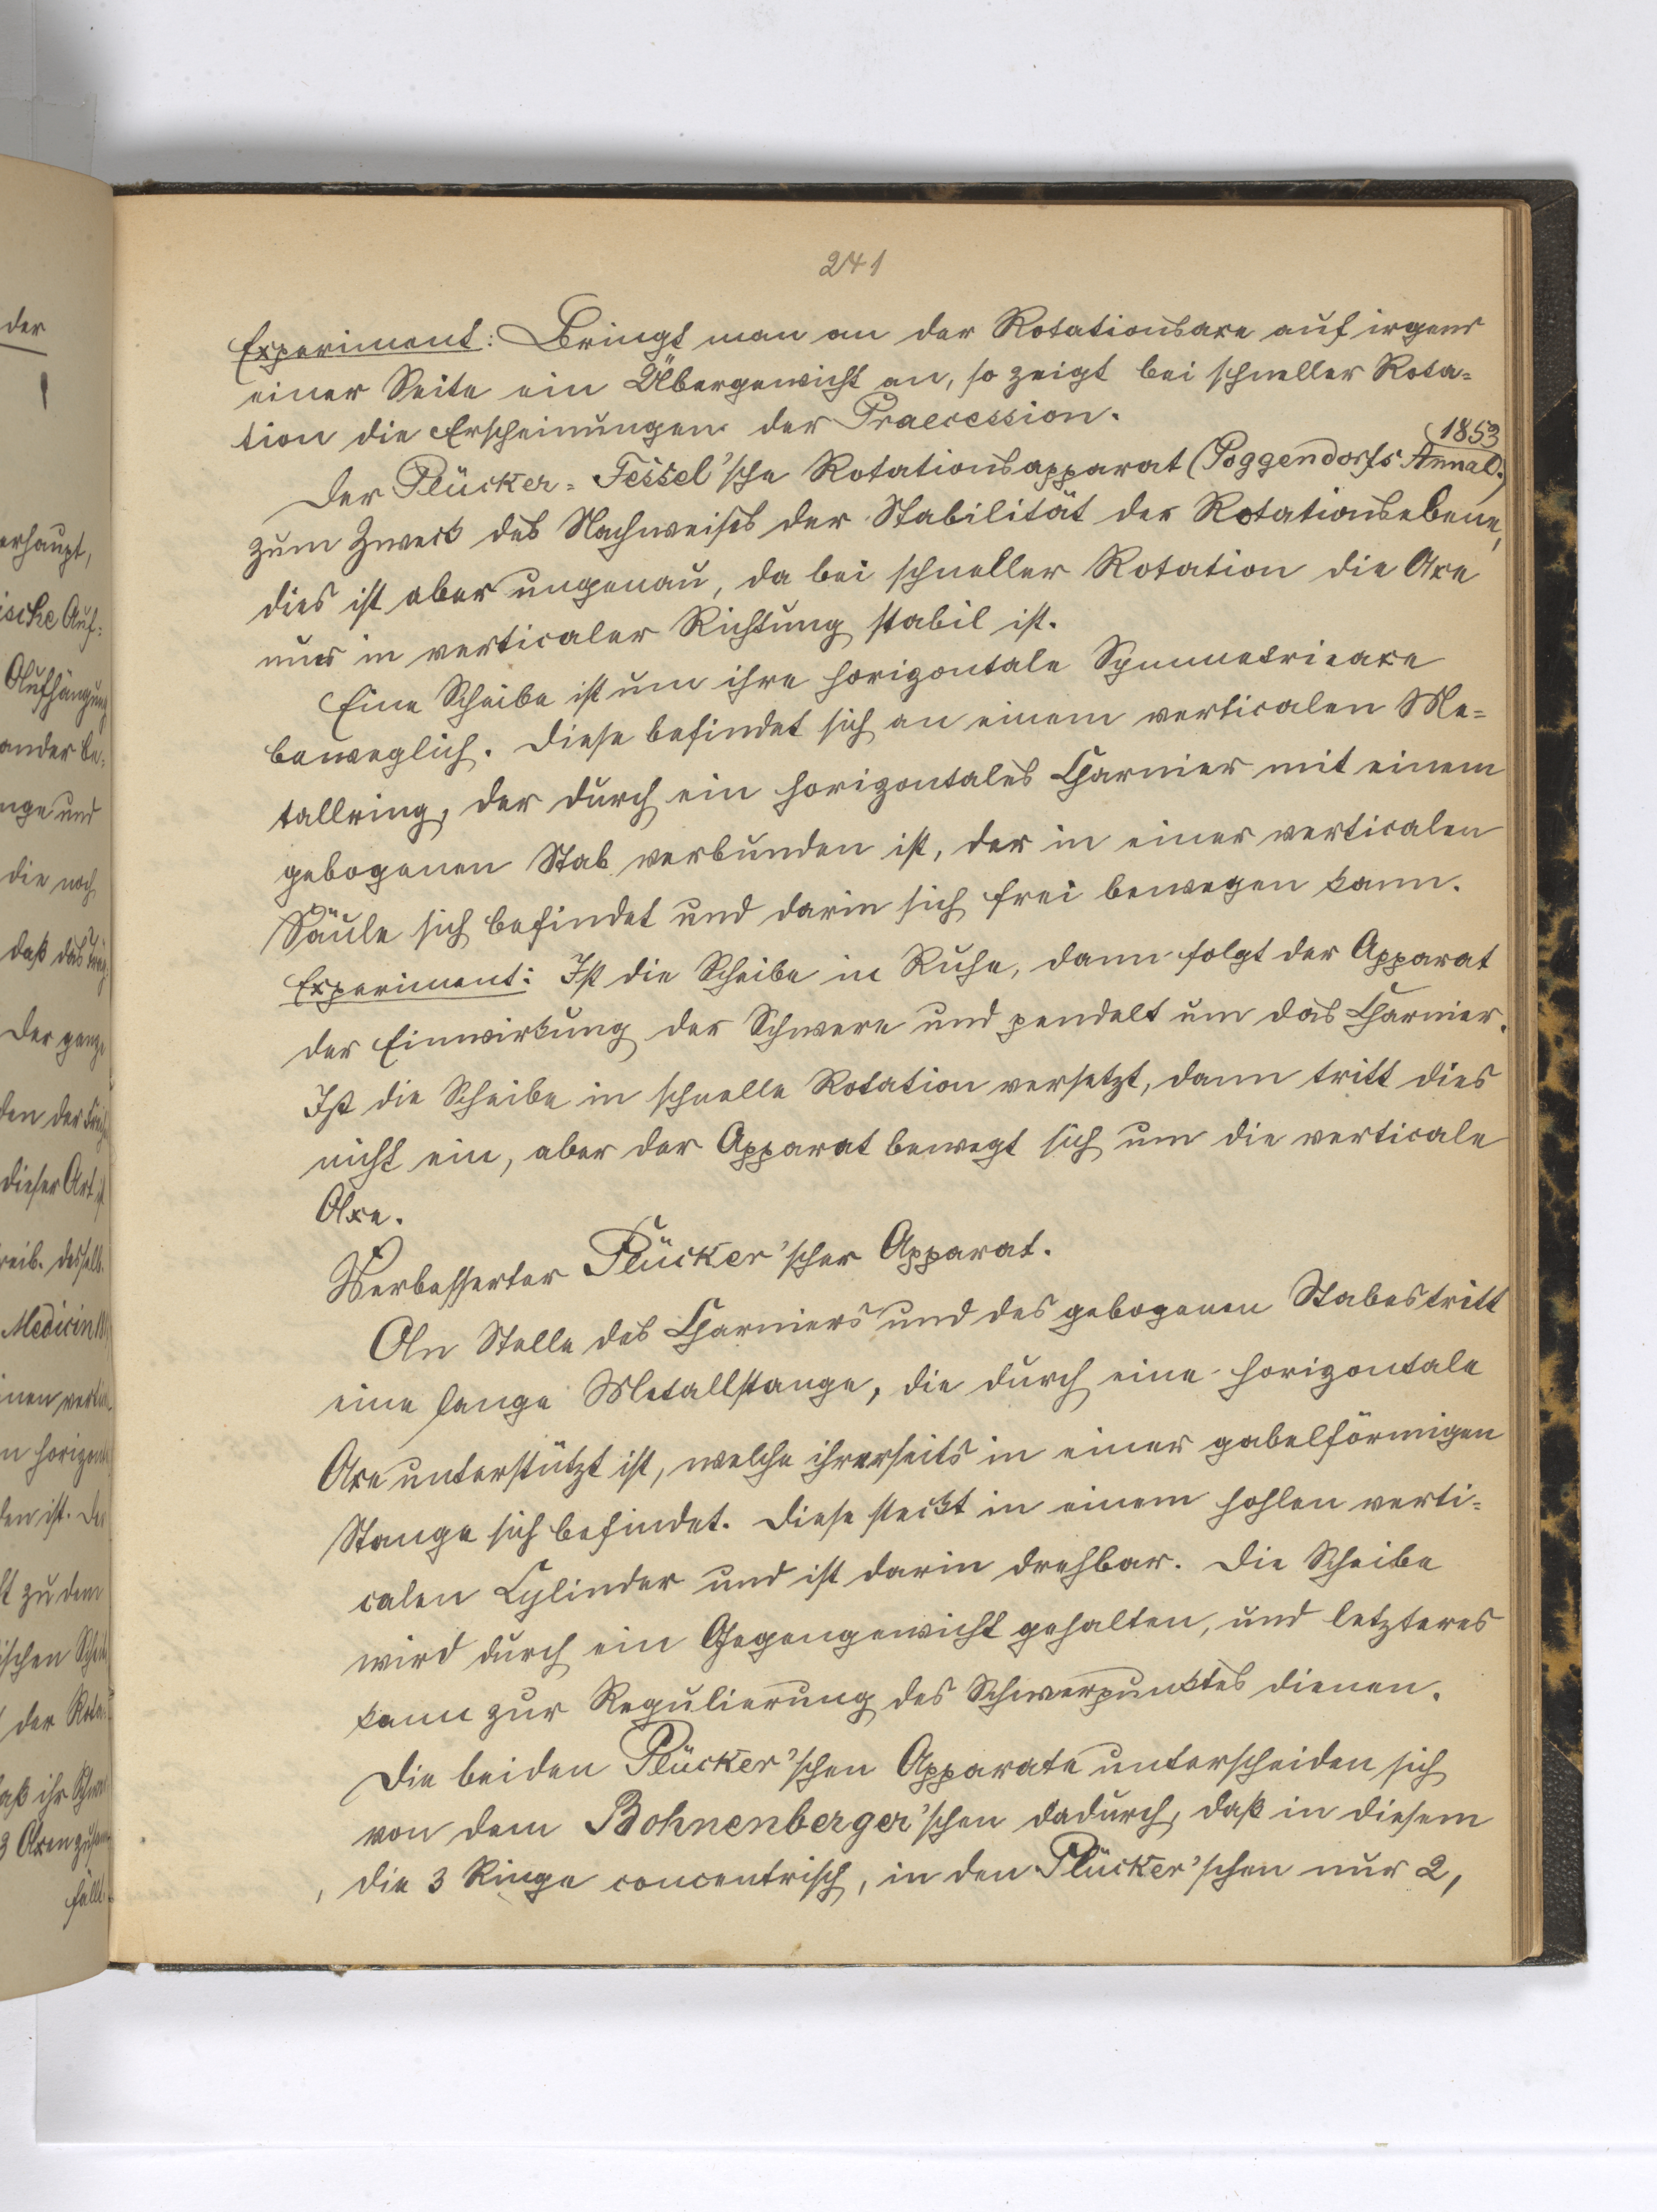 241
Experiment: Bringt man an der Rotationsaxe auf irgend
einer Seite ein Übergewicht an, so zeigt bei schneller Rota=
tion die Erscheinungen der Praecession.
1853
Der Plücker=Fessel'sche Rotationsapparat (Poggendorfs Annal.)
zum Zweck des Nachweises der Stabilität der Rotationsebene,
dies ist aber ungenau, da bei schneller Rotation die Axe
nur in verticaler Richtung stabil ist.
Eine Scheibe ist um ihre horizontale Symmetrieaxe
beweglich. Diese befindet sich an einem verticalen Me=
tallring, der durch ein horizontales Charnier mit einem
gebogenen Stab verbunden ist, der in einer verticalen
Säule sich befindet und darin sich frei bewegen kann.
Experiment: Ist die Scheibe in Ruhe, dann folgt der Apparat
der Einwirkung der Schwere und pendelt um das Charnier.
Ist die Scheibe in schnelle Rotation versetzt, dann tritt dies
nicht ein, aber der Apparat bewegt sich um die verticale
Axe.
Verbesserter Plücker'scher Apparat.
An Stelle des Charniers und des gebogenen Stabes tritt
eine lange Metallstange, die durch eine horizontale
Axe unterstützt ist, welche ihrerseits in einer gabelförmigen
Stange sich befindet. Diese steckt in einem hohlen verti=
calen Cylinder und ist darin drehbar. Die Scheibe
wird durch ein Gegengewicht gehalten, und letzteres
kann zur Regulierung des Schwerpunktes dienen.
Die beiden Plücker'schen Apparate unterscheiden sich
von dem Bohnenberger'schen dadurch, daß in diesem
die 3 Ringe concentrisch, in den Plücker'schen nur 2,